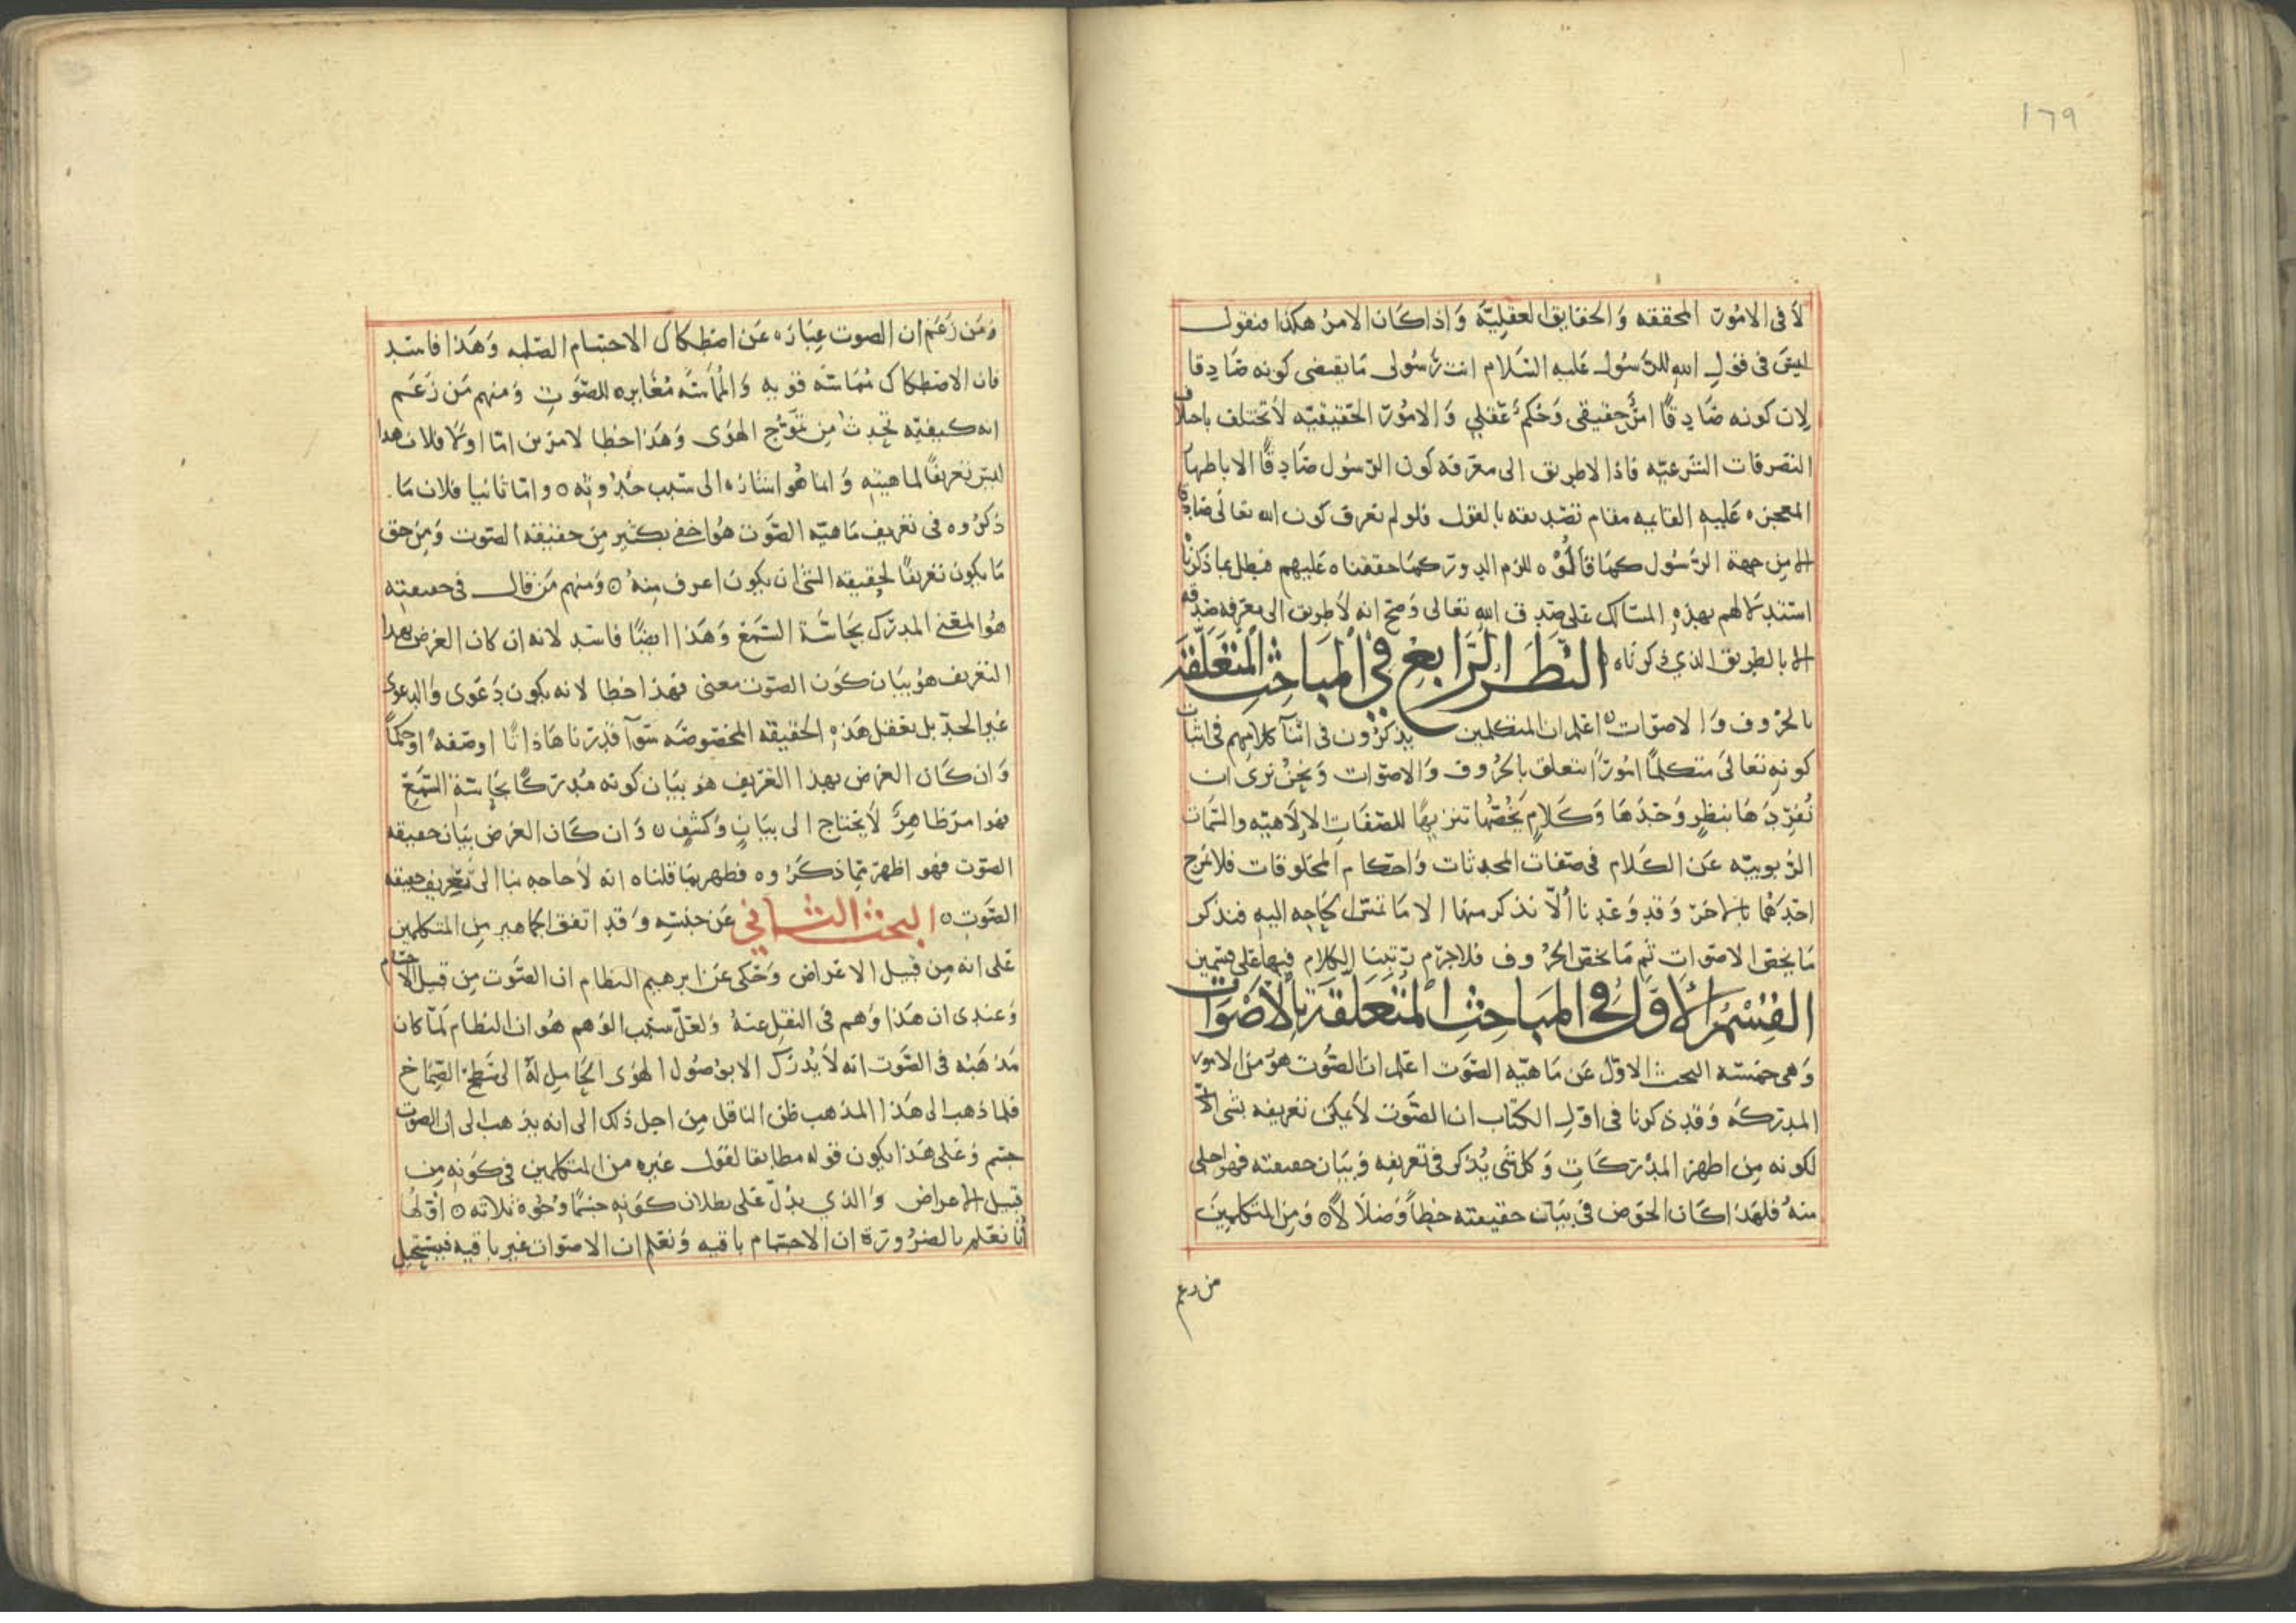 ١٦٩
لا في الامور المحققه والحقايق العقلية واذا كان الامر هكذا فنقول
ليس في قول الله للرسول عليه السلام انت رسولى ما يقتضى كونه صادقا
لان كونه صادقًا امرٌ حقيقى وحكمٌ عقلي والامور الحقيقيه لا تختلف باختلاف
التصرفات الشرعيه فاذا لا طريق الى معرفه كون الرسول صادقًا الا باظهار
المعجزه عليه القايمه مقام تصديقه بالقول فلو لم نعرف كون الله تعالى صادقا
الا من جهة الرسول كما قالُوْه للزم الدور كما حققناه عليهم فبطل بما ذكرنا
استدلالهم بهذهِ المسالك على صدق الله تعالى وصح انه لا طريق الى معرفه صدقه
الا بالطريق الذي ذكرناه ۝ النظر الرابع في المباحث المتعلقة
بالحروف والاصوات ۝ اعلم ان المتكلمين يذكرون في اثنآ كلامهم في اثبات
كونه تعالى متكلمًا امورًا تتعلق بالحروف والاصوات ونحن نرى ان
نُفرِدَها بنظرٍ وحدَها وكلامٍ يخُصُّها تنزيهًا للصفات الالاهيه والسمات
الربوبيه عن الكلام في صفات المحدثات واحكام المخلوقات فلا نمزج
احدهما بالاخر وقد وعدنا ألّا نذكر منها الا ما تمس الحاجه اليه فنذكر
ما يخص الاصوات ثم ما يخص الحروف فلا جرم رتبنا الكلام فيها على قسمين
القسم الاول في المباحث المتعلقة بالاصوات
وهى خمسه البحث الاول عن ماهيه الصوت اعلم ان الصوت هو من الامور
المدركه وقد ذكرنا في اول الكتاب ان الصوت لا يمكن تعريفه بشى اخر
لكونه من اظهر المدركات وكل شى يُذكر في تعريفه وبيان حقيقته فهو اجلى
منهُ فلهذا كان الخوض في بيان حقيقته خطاً وضلالًا ۝ ومن المتكلمين
من زعم
ومن زعم ان الصوت عباره عن اصطكاك الاجسام الصلبه وهذا فاسد
فان الاصطكاك مماسّه قويه والمماسّه مغايره للصوت ومنهم من زعم
انه كيفيه تحدث من تموّج الهوى وهذا خطا لامرين اما اولا فلان هذا
ليس تعريفًا لماهيته وانما هو اشاره الى سبب حدوثه ۝ واما ثانيا فلان ما
ذكروه في تعريف ماهيه الصوت هو اخفى بكثير من حقيقه الصوت ومن حق
ما يكون تعريفًا لحقيقه الشى ان يكون اعرف منه ۝ ومنهم من قال في حقيقته
هو المعنى المدرك بحاسّة السمع وهذا ايضًا فاسد لانه ان كان الغرض بهذا
التعريف هو بيان كون الصوت معنى فهذا خطا لانه يكون دعوى والدعوى
غير الحدّ بل نعقل هذه الحقيقه المخصوصه سوآ قدرناها ذاتًا او صفهً او حكماً
وان كان الغرض بهذا التعريف هو بيان كونه مدركًا بحاسة السمع
فهو امر ظاهرٌ لا يحتاج الى بيانٍ وكشفٍ ۝ وان كان الغرض بيان حقيقه
الصوت فهو اظهر مما ذكروه فظهر بما قلناه انه لا حاجه بنا الى تعريف حقيقه
الصوت ۝ البحث الثاني عن جنسه وقد اتفق الجماهير من المتكلمين
على انه من قبيل الاعراض وحكى عن ابرهيم النظام ان الصوت من قبيل الاجسام
وعندى ان هذا وهم في النقل عنهُ ولعلّ سبب الوهم هو ان النظام لمّا كان
مذهبه في الصوت انه لا يُدرك الا بوصول الهوى الحامل لهُ الى سَطحِ الصماخ
فلما ذهب الى هذا المذهب ظن الناقل من اجل ذلك الى انه يذهب الى ان الصوت
جسم وعلى هذا يكون قوله مطابقا لقول غيره من المتكلمين في كونه من
قبيل الاعراض والذي يدلّ على بطلان كونه جسمًا وجُوه ثلاثه ۝ اولها
أنّا نعلم بالضرورة ان الاجسام باقيه ونعلم ان الاصوات غير باقيه فيستحيل